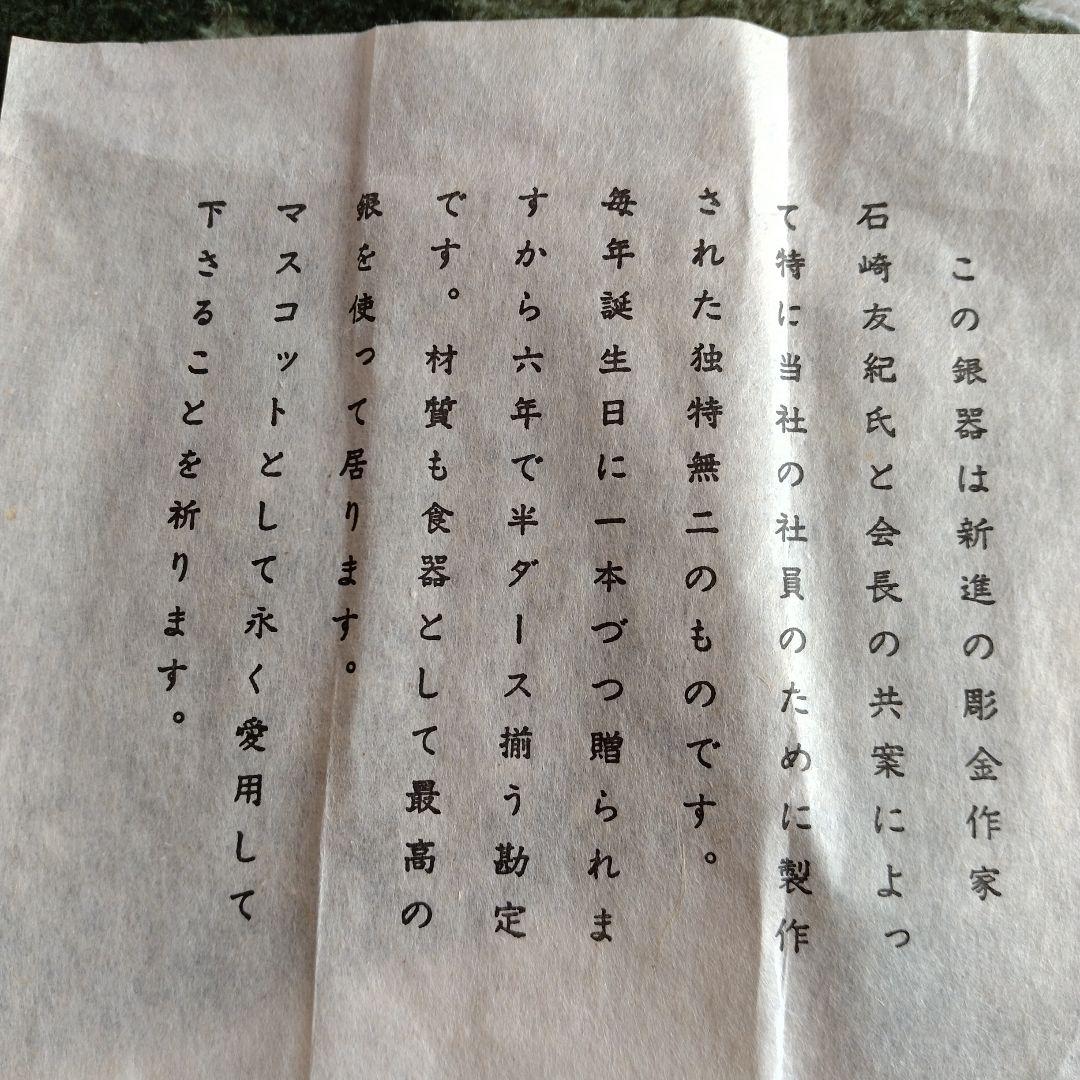 この銀器は新進の彫金作家
石崎友紀氏と会長の共案によっ
て特に当社の社員のために製作
された独特無二のものです。
毎年誕生日に一本づつ贈られま
すから六年で半ダース揃う勘定
です。材質も食器として最高の
銀を使って居ります。
マスコットとして永く愛用して
下さることを祈ります。